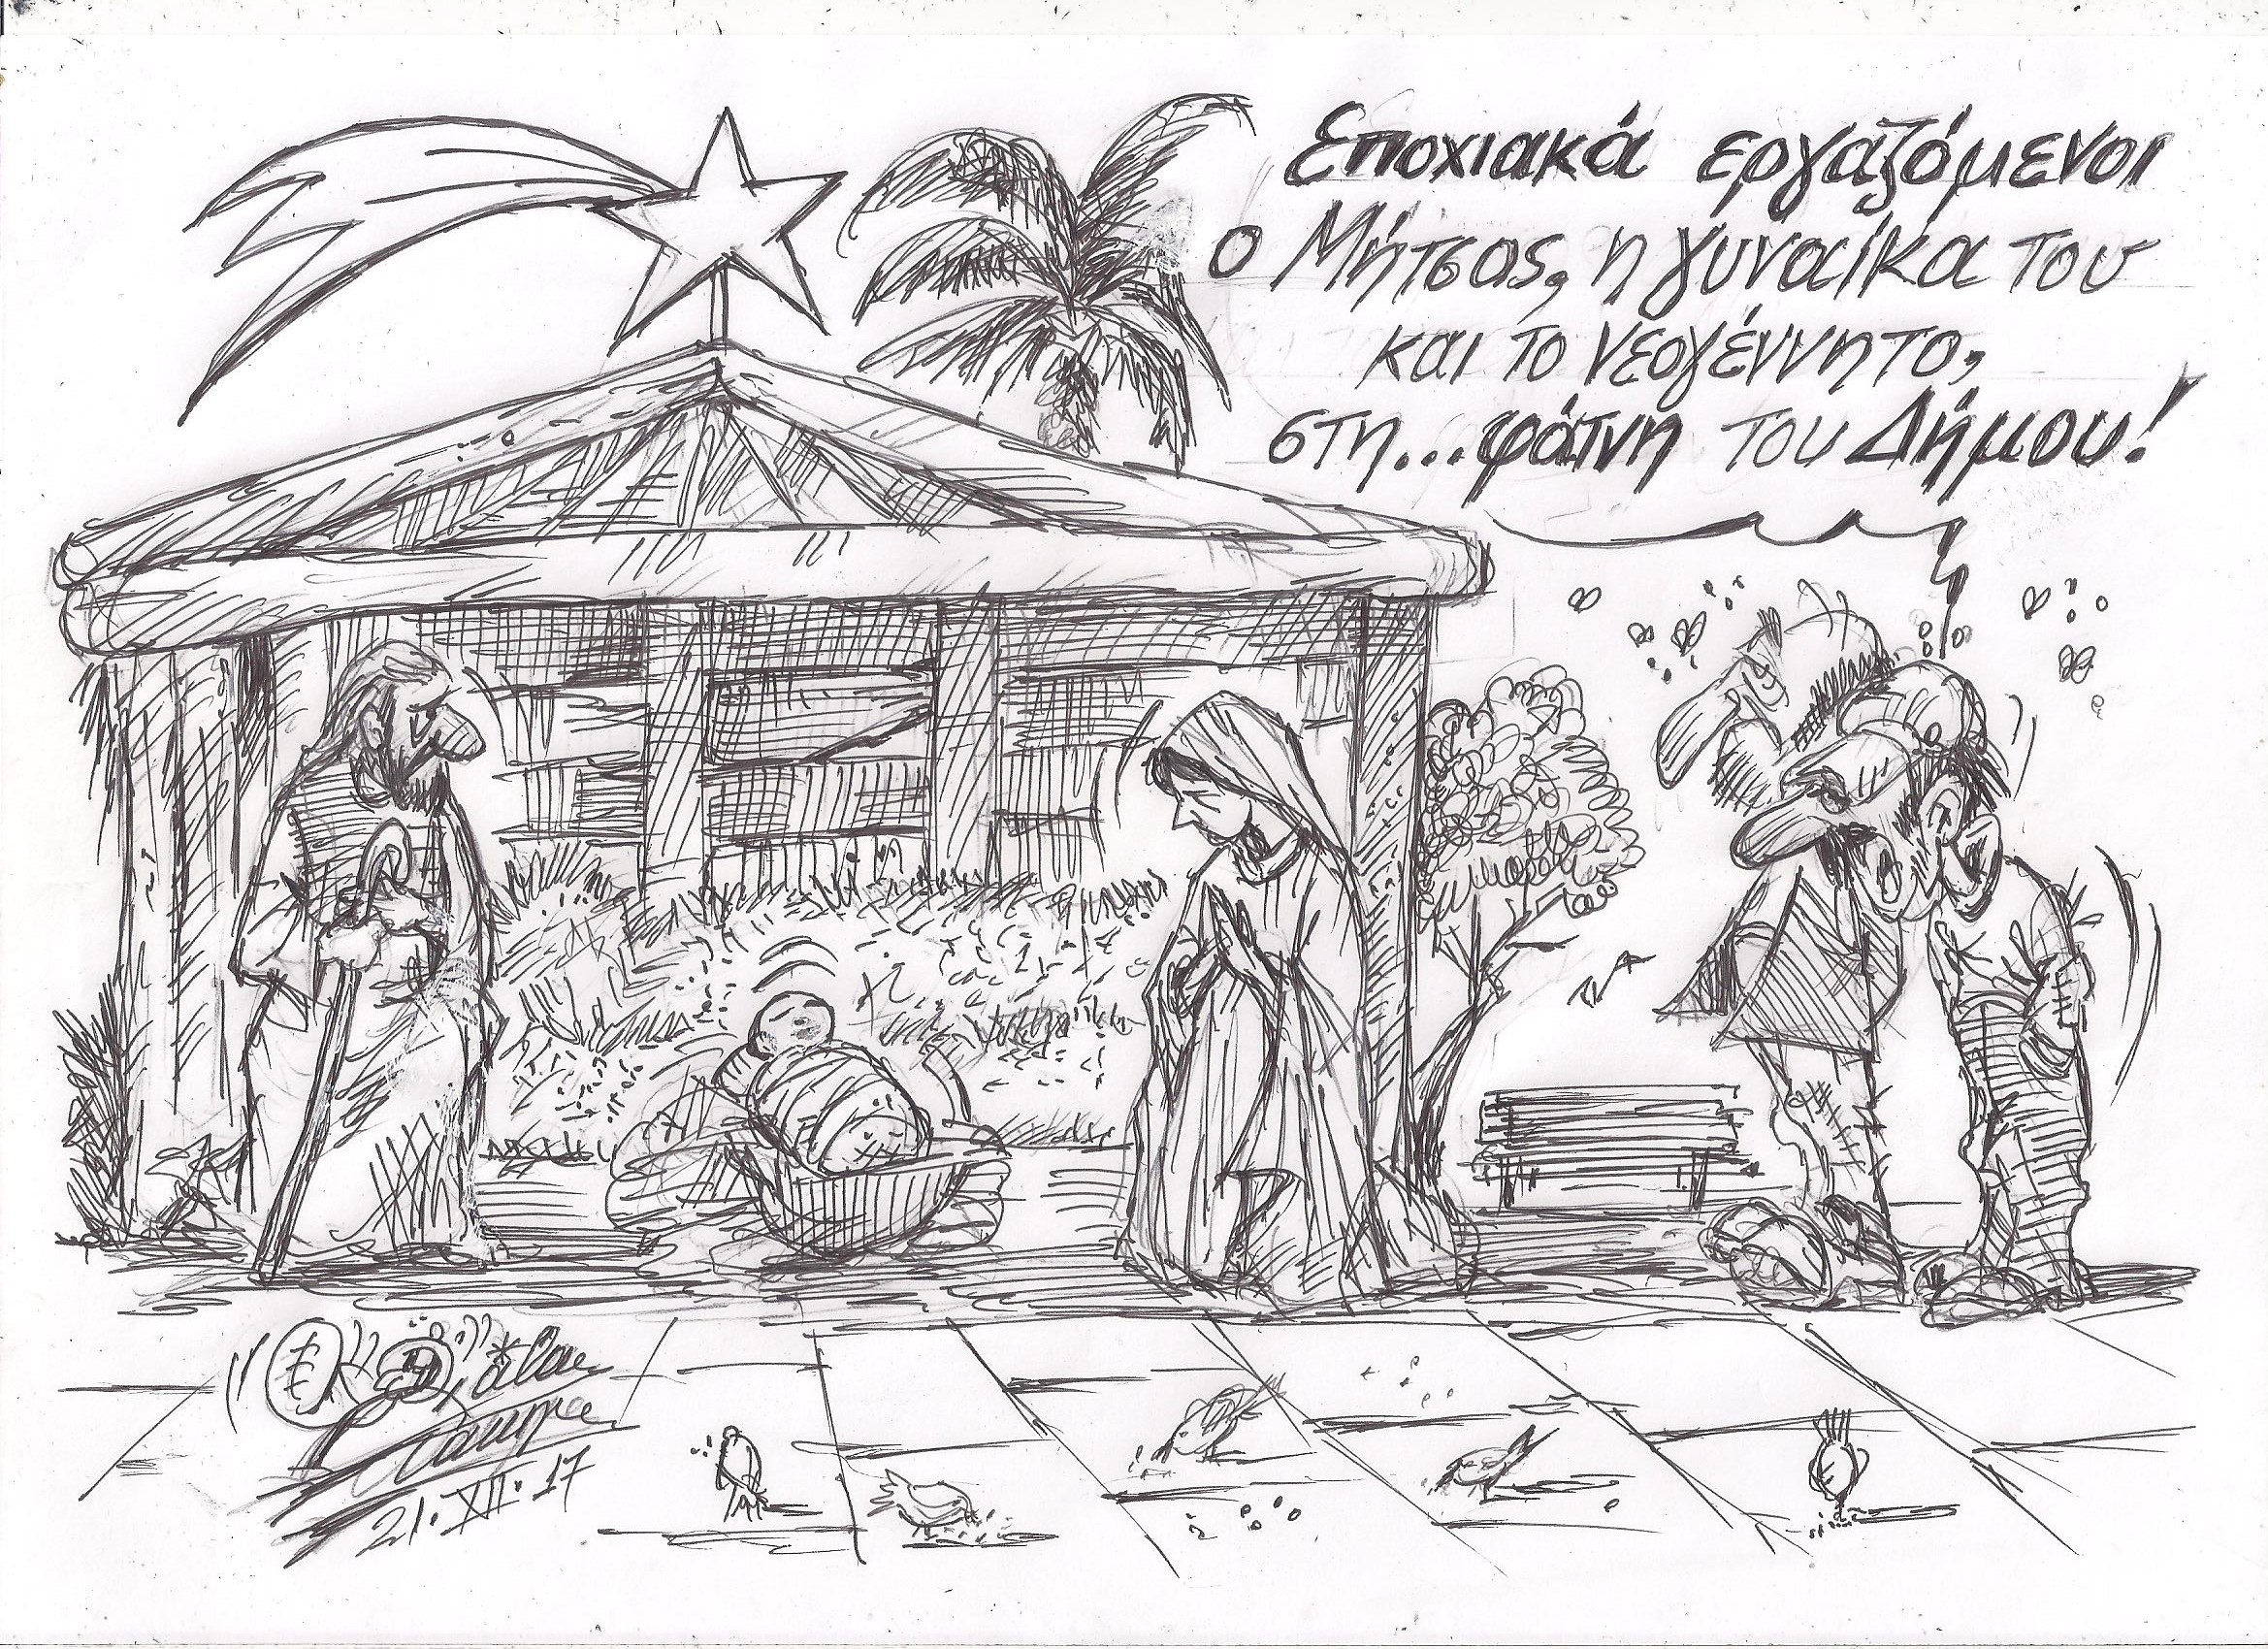 Εποχιακά εργαζόμενοι
ο Μήτσος, η γυναίκα του
και το νεογέννητο,
στη...φάτνη του Δήμου!
21·XII·17